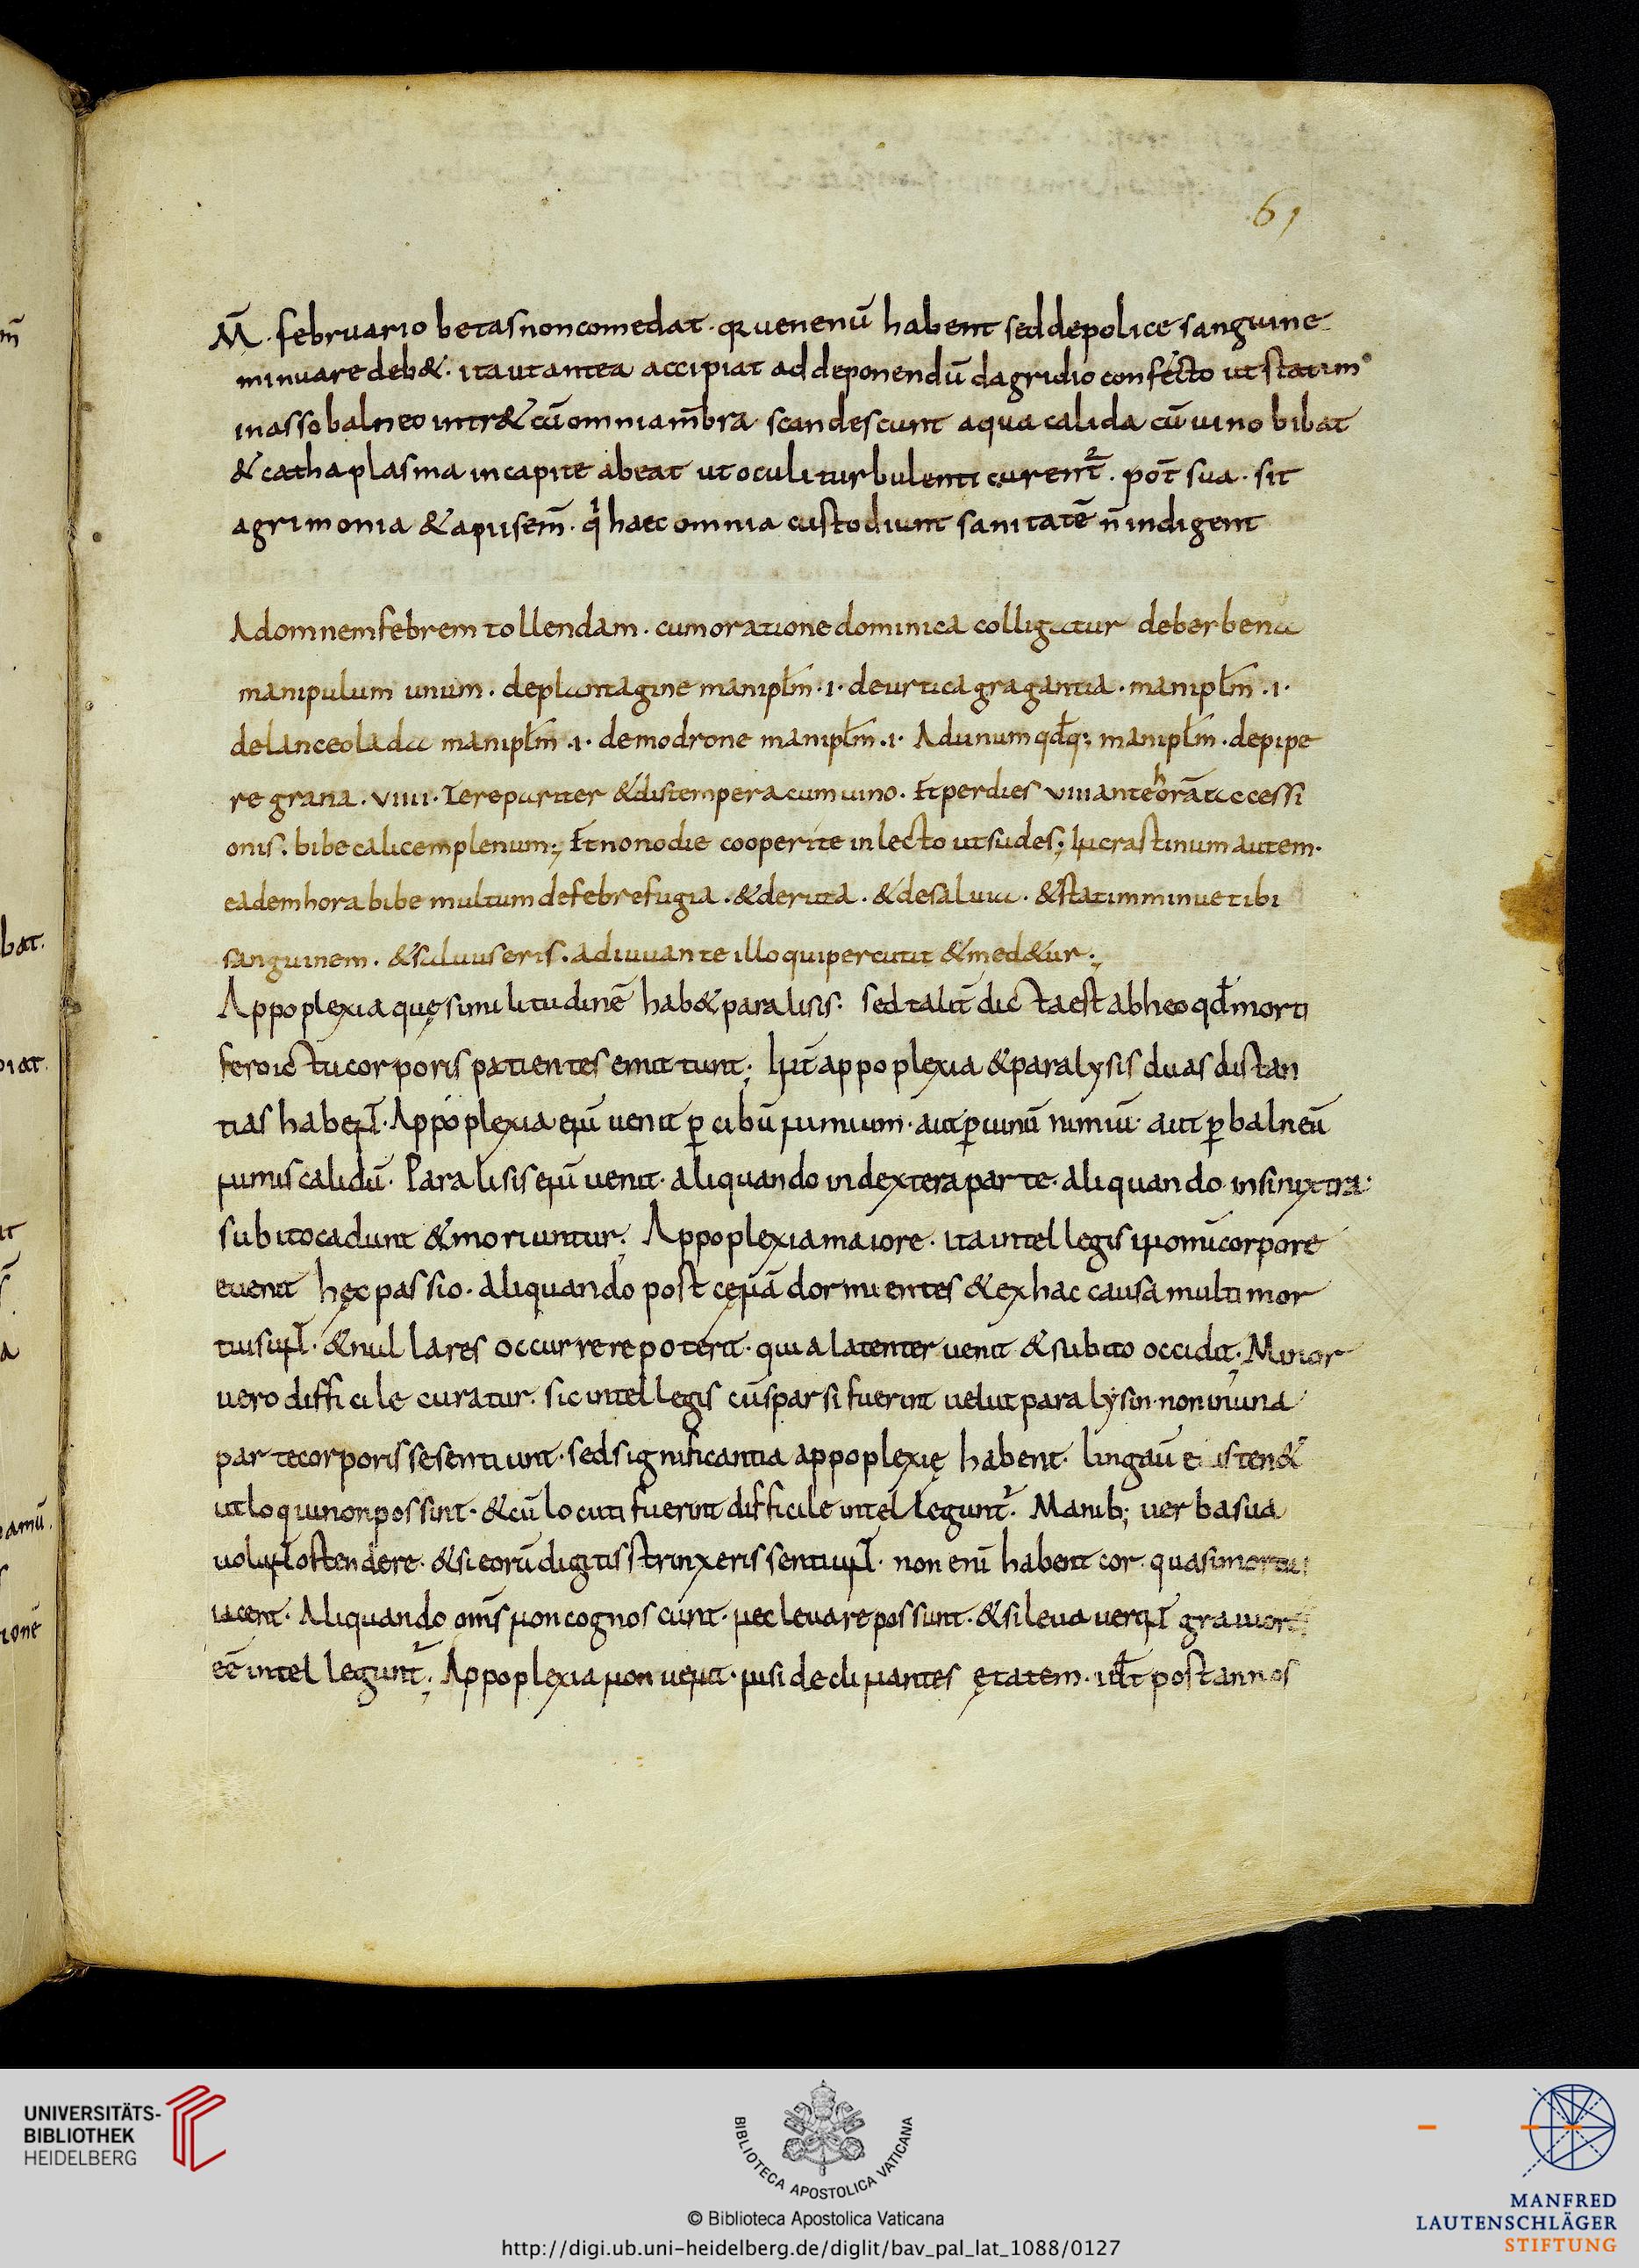 61
M̄. februario betas non comedat. qꝛ uenenū habent sed de police sanguine
minuare deb&. ita ut antea accipiat ad deponendū dagridio confecto ut statim
in asso balneo intr& cū omnia m̄bra scandescunt aqua calida cū uino bibat
& cathaplasma in capite abeat ut oculi turbulenti curent̄. pot̄ sua. sit
agrimonia & apii sem̄. q̇ haec omnia custodiunt sanitatē n̄ indigent
Ad omnem febrem tollendam. cum oratione dominica colligatur de berbena
manipulum unum. de plantagine manipl̄m .i. de urtica gragantia. manipl̄m .i.
de lanceolada manipl̄m .i. de modrone manipl̄m .i. Ad unumqd̄q; manipl̄m. de pipe
re grana. viiii. Tere pariter & distempera cum uino. Et per dies viii ante horā accessi
onis. bibe calicem plenum; Et non odie cooperite in lecto ut sudes; In crastinum autem.
eadem hora bibe multum de febrefugia. & de ruta. & de saluia. & statim minue tibi
sanguinem. & saluus eris. adiuuante illo qui percutit & med&ur;
Appoplexia quę similitudinē hab& paralisis. sed talit̄ dicta est ab heo qd̄ morti
fero ictu corporis patientes emittunt; Int̄ appoplexia & paralysis duas distan
tias habent. Appoplexia enī uenit ꝑ cibū nimium. aut ꝑ uinū nimiū. aut ꝑ balneū
nimis calidū. Paralisis enī uenit. aliquando in dextera parte. aliquando in sinixtra.
subito cadunt & moriuntur; Appoplexia maiore. ita intellegis in omī corpore
euenit hęc passio. aliquando post cęnā dormientes & ex hac causa multi mor
tui sunt. & nulla res occurrere poterit. quia latenter uenit & subito occidit; Minor
uero difficile curatur. sic intellegis cūsparsi fuerint uelut paralysin. non in una
parte corporis se sentiunt. sed significantia appoplexię habent. lingaū
ut loqui non possint. & cū locuti fuerint difficile intellegunt̄. Manib; uerba sua
uolunt ostendere. & si eorū digitis strinxeris sentiunt. non enī habent cor. quasi mortui
iacent. Aliquando omīs non cognoscunt. nec leuare possunt. & si leuauerint grauiore
eē̄ intellegunt̄; Appoplexia non uenit. nisi declinantes ętatem. id̄t post annos
m̄
bat.
iat.
a
amū.
ionē
UNIVERSITÄTS-
BIBLIOTHEK
HEIDELBERG
BIBLIOTECA APOSTOLICA VATICANA
© Biblioteca Apostolica Vaticana
http://digi.ub.uni-heidelberg.de/diglit/bav_pal_lat_1088/0127
MANFRED
LAUTENSCHLÄGER
STIFTUNG